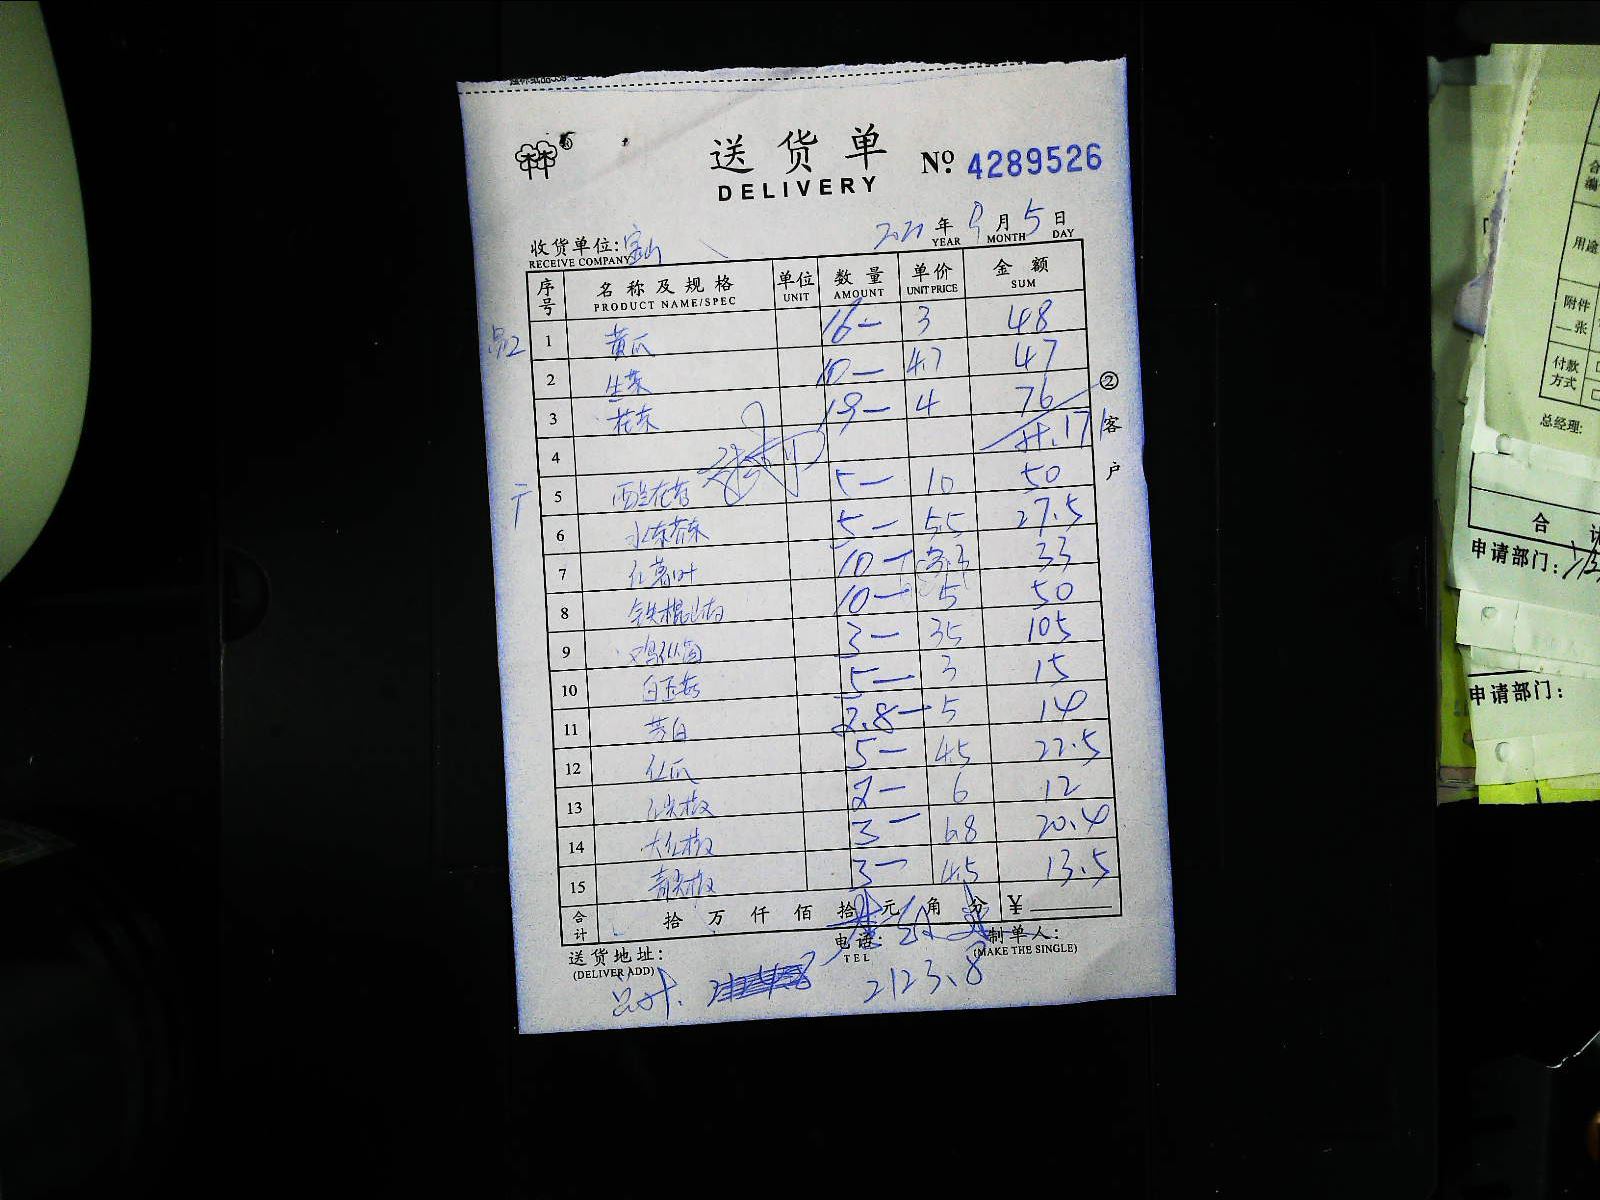 送货单
DELIVERY
No. 4289526
收货单位: 宝山
RECEIVE COMPANY
2021 年 9 月 5 日
YEAR MONTH DAY
序号 名称及规格 单位 数量 单价 金额
PRODUCT NAME/SPEC UNIT AMOUNT UNIT PRICE SUM
1 黄瓜 16— 3 48
2 生菜 10— 4.7 47
3 花菜 19— 4 76
4
5 西兰花苔 5— 10 50
6 水东芥菜 5— 5.5 27.5
7 红薯叶 10— 3.3 33
8 铁棍山药 10— 5 50
9 鸡枞菌 3— 35 105
10 白玉菇 5— 3 15
11 茭白 2.8— 5 14
12 红瓜 5— 4.5 22.5
13 红尖椒 2— 6 12
14 大红椒 3— 6.8 20.4
15 青尖椒 3— 4.5 13.5
合计 拾 万 仟 佰 拾 元 角 分 ¥
②客户
送货地址:
(DELIVER ADD)
电话:
TEL
制单人:
(MAKE THE SINGLE)
总计. 2123.8
合
申请部门:
申请部门:
用途
附件
一张
付款
方式
总经理: